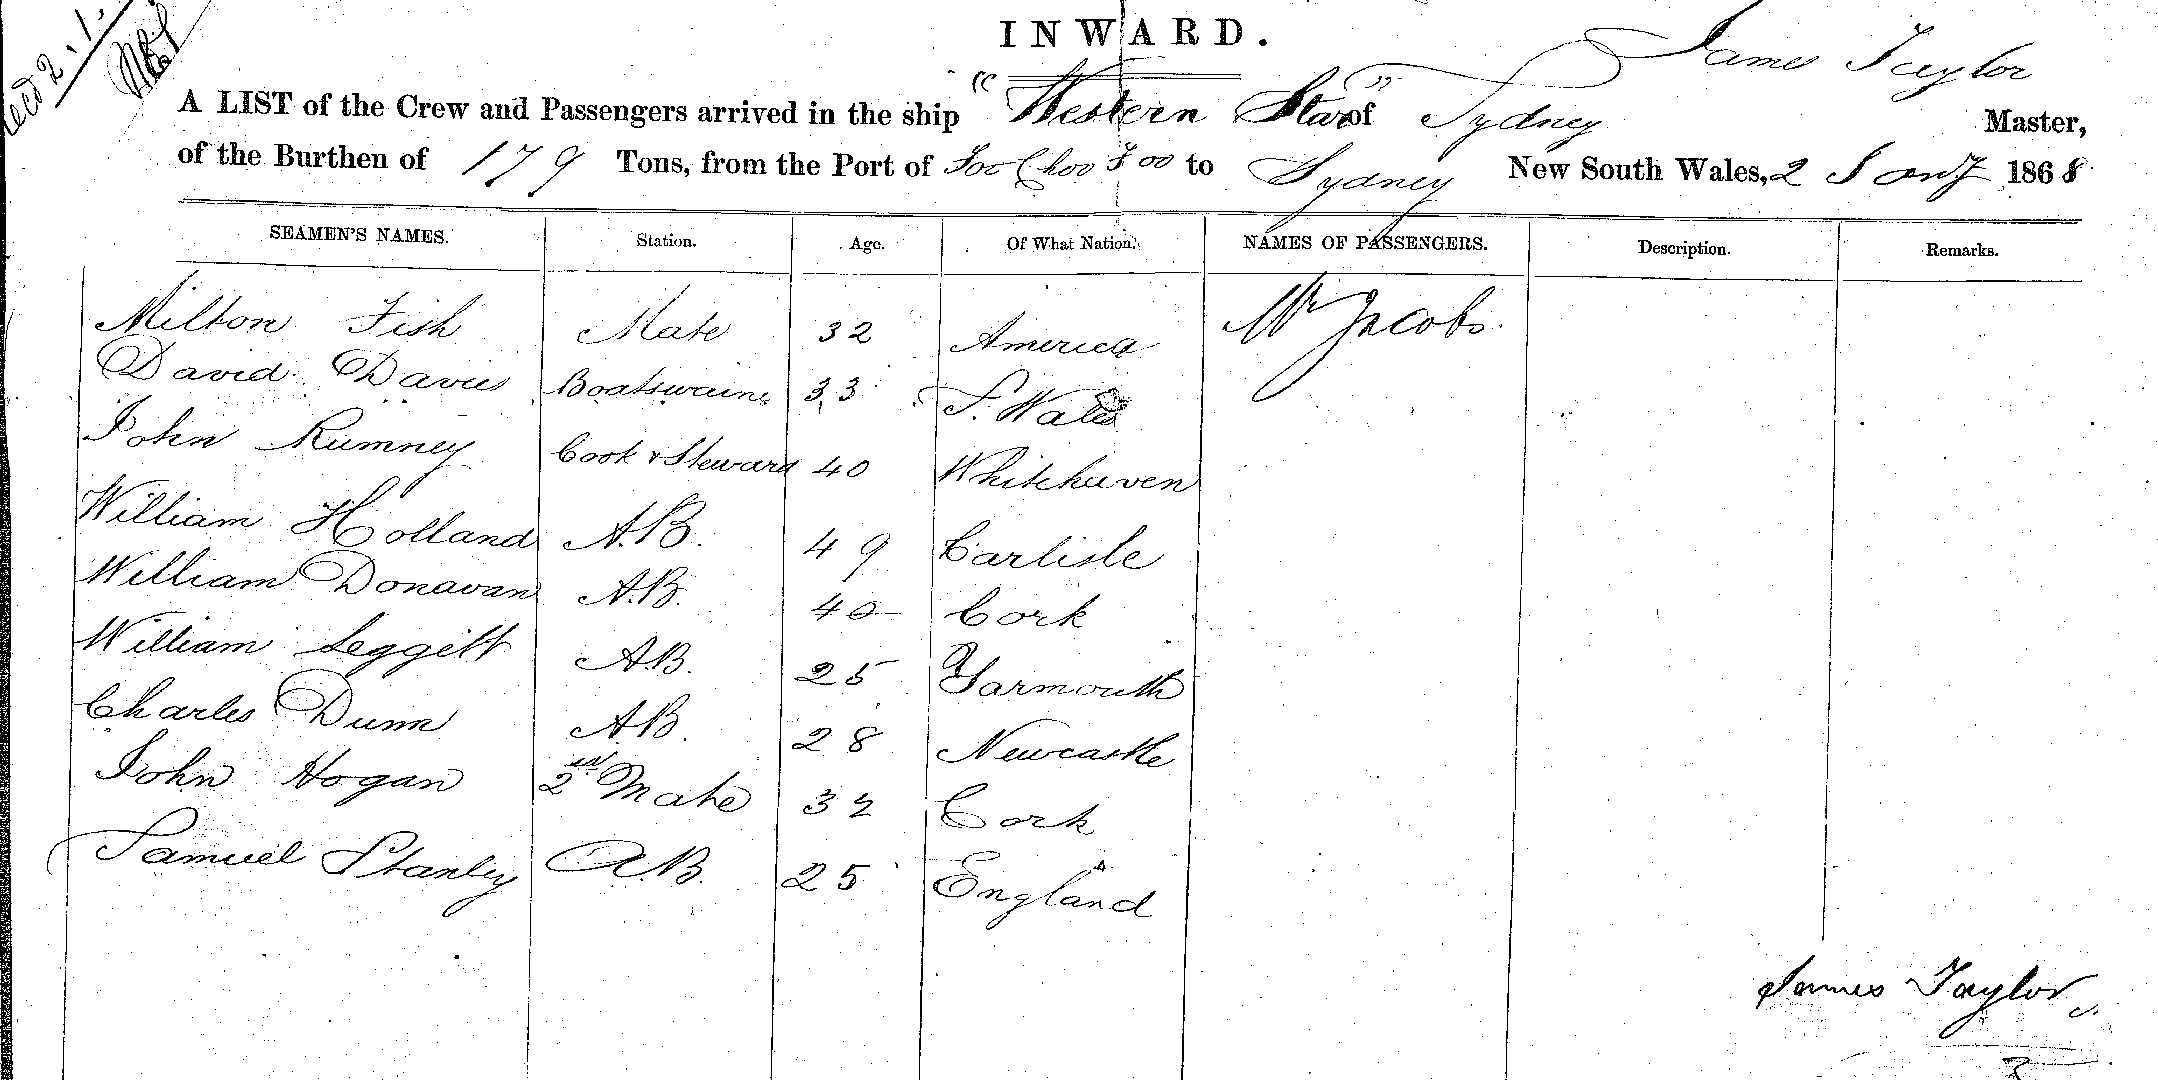 Recd 2.1.
INWARD.
James Taylor
A LIST of the Crew and Passengers arrived in the ship "Western Star" of Sydney Master,
of the Burthen of 179 Tons, from the Port of Foo Choo Foo to Sydney New South Wales, 2 Jany 1868
SEAMEN'S NAMES. Station. Age. Of What Nation. NAMES OF PASSENGERS. Description. Remarks.
Milton Fish Mate 32 America Mr Jacobs.
David Davies Boatswain 33 S. Wales
John Rumney Cook & Steward 40 Whitehaven
William Holland A.B. 49 Carlisle
William Donavan A.B. 40 Cork
William Leggitt A.B. 25 Yarmouth
Charles Dunn A.B. 28 Newcastle
John Hogan 2nd Mate 32 Cork
Samuel Stanley A.B. 25 England
James Taylor